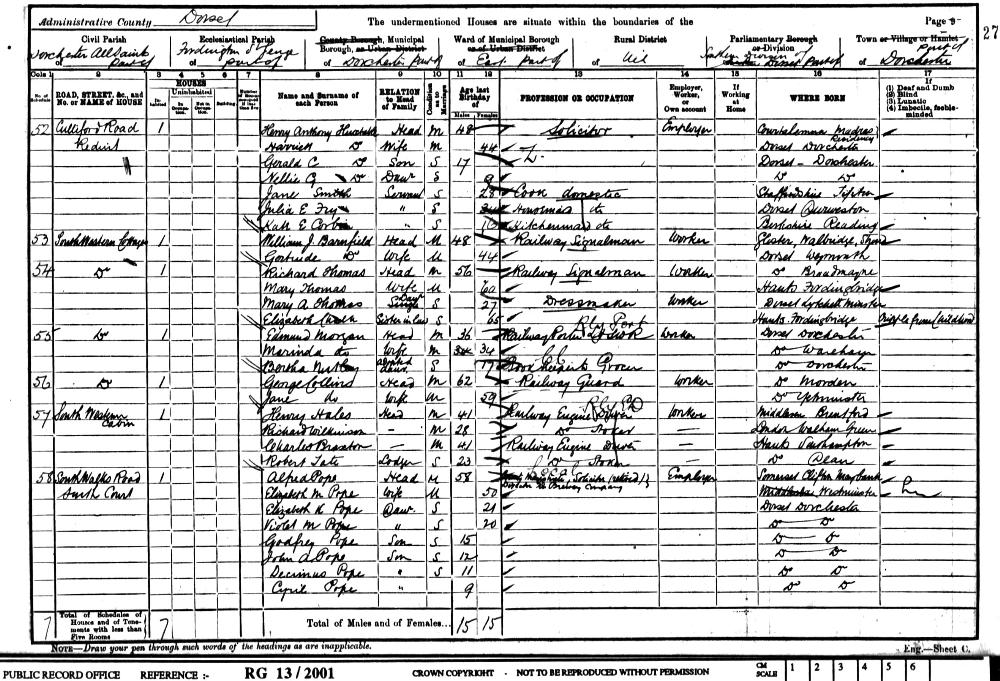 Administrative County Dorset The undermentioned Houses are situate within the boundaries of the Page 9
27
Civil Parish Ecclesiastical Parish County Borough, Municipal Borough, or Urban District Ward of Municipal Borough or of Urban District Rural District Parliamentary Borough or Division Town or Village or Hamlet
Dorchester All Saints part of Fordington St George part of of Dorchester part of of East part of of Nil Dorset part of of Dorchester part of
Cols 1 2 3 4 5 6 7 8 9 10 11 12 13 14 15 16 17
No. of Schedule ROAD, STREET, &c., and No. or NAME of HOUSE HOUSES Inhabited Uninhabited In Occupation Not in Occupation Building Name and Surname of each Person RELATION to Head of Family Condition as to Marriage Age last Birthday of Males Females PROFESSION OR OCCUPATION Employer, Worker, or Own account If Working at Home WHERE BORN If (1) Deaf and Dumb (2) Blind (3) Lunatic (4) Imbecile, feeble-minded
52 Culliford Road 1 Henry Anthony Head M 48 Solicitor Employer Madras
Harriett Do Wife M 44 Dorset Dorchester
Gerald C Do Son S 17 Dorset - Dorchester
Nellie G Do Daur S 9 Do Do
Jane Smith Servant S 28 Cook domestic Staffordshire Tipton
Julia E Fry " S Housemaid do Dorset Durweston
Kate E " S Kitchenmaid do Berkshire Reading
53 South Western Cottages 1 William J. Barnfield Head M 48 Railway Signalman Worker Gloster,
Gertrude Do Wife M 44 Dorset Weymouth
54 Do 1 Richard Thomas Head M 56 Railway Signalman Worker Do Broadmayne
Mary Thomas Wife M 60 Hants Fordingbridge
Mary A Thomas Daur S 27 Dressmaker Worker Dorset Lytchett Minster
Elizabeth Sister in law S 65 Hants Fordingbridge
55 Do 1 Edmund Morgan Head M 36 Railway Porter Worker Dorset Dorchester
Marinda do Wife M 34 Do Wareham
Bertha adopted daur. S 17 Book Keeper Grocer Do Dorchester
56 Do 1 George Collins Head M 62 Railway Guard Worker Do Morden
Jane do Wife M 59 Do Yetminster
57 South Western Cabin 1 Henry Hales Head M 41 Railway Engine Driver Worker Middlesex Brentford
Richard Wilkinson — M 28 Do Stoker — London Walham Green
Charles Braxton — M 41 Railway Engine Driver — Hants Southampton
Robert Tate Lodger S 23 Do Stoker — Do Dean
58 South Walks Road 1 Alfred Pope Head M 58 Solicitor (retired) Employer Somerset Clifton Maybank
South Court Elizabeth M Pope Wife M 50 Director Railway Company Westminster
Elizabeth K Pope Daur S 21 Dorset Dorchester
Violet M Pope " S 20 Do Do
Godfrey Pope Son S 15 Do Do
John A Pope Son S 12 Do Do
Decimus Pope " S 11 Do Do
Cyril Pope " 9 Do Do
7 Total of Schedules of Houses and of Tenements with less than Five Rooms 7 Total of Males and of Females... 15 15
NOTE—Draw your pen through such words of the headings as are inapplicable. Eng.—Sheet C.
PUBLIC RECORD OFFICE REFERENCE :- RG 13/2001 CROWN COPYRIGHT - NOT TO BE REPRODUCED WITHOUT PERMISSION CM SCALE 1 2 3 4 5 6